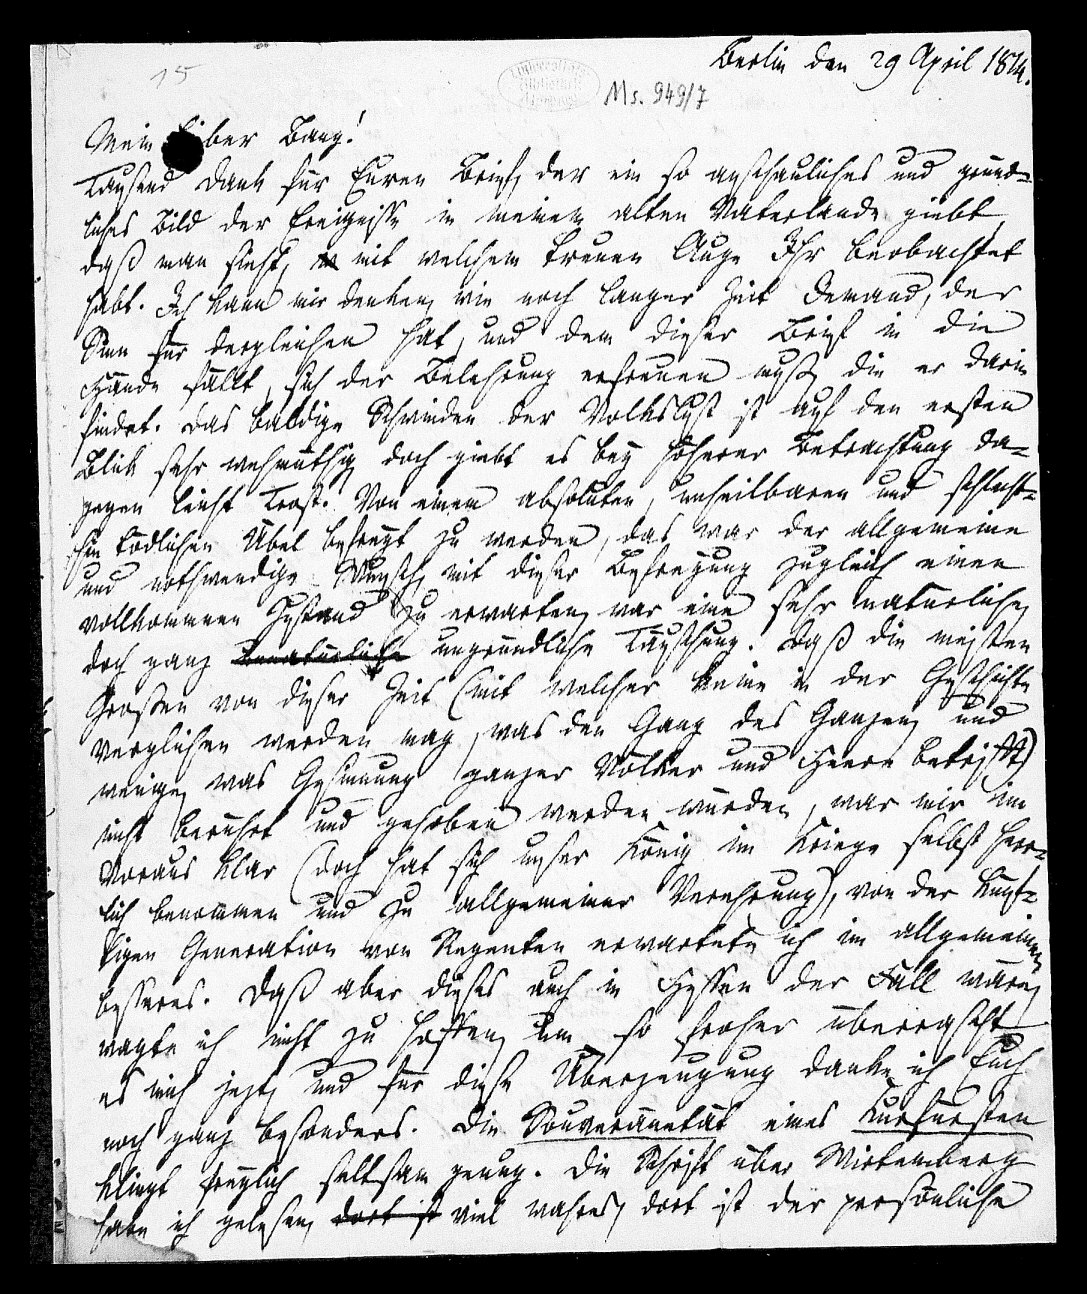 Berlin den 29 April 1814.
15
Ms. 949/7
Mein lieber Bang!
Tausend Dank für Euren Brief, der ein so anschauliches und gründ-
liches Bild der Ereignisse in meinem alten Vaterlande giebt,
daß man sieht, mit welchem treuen Auge Ihr beobachtet
habt. Ich kann mir denken, wie nach langer Zeit Jemand, der
Sinn für dergleichen hat, und dem dieser Brief in die
Hände fällt, sich der Belehrung erfreuen muß, die er darin
findet. Das baldige Schwinden der Volkslust ist auf den ersten
Blick sehr wehmüthig, doch giebt es bey höherer Betrachtung da-
gegen leicht Trost. Von einem absoluten, unheilbaren und schlecht-
hin tödlichen Übel befreyt zu werden, das war der allgemeine
und nothwendige Wunsch, mit dieser Befreyung zugleich einen
vollkommnen Zustand zu erwarten, war eine sehr natürliche,
doch ganz unnatürliche ungründliche Täuschung. Daß die meisten
Großen von dieser Zeit (mit welcher keine in der Geschichte
verglichen werden mag, was den Gang des Ganzen, und
wenige, was Gesinnung ganzer Völker und Heere betrifft)
nicht berührt und gehoben werden würden, war mir im
Voraus klar (doch hat sich unser König im Kriege selbst herr-
lich benommen und zu allgemeiner Verehrung), von der künf-
tigen Generation von Regenten erwartete ich im allgemeinen
besseres. Daß aber dieses auch in Hessen der Fall wäre,
wagte ich nicht zu hoffen, um so froher überrascht
es mich jezt, und für diese Überzeugung danke ich Euch
noch ganz besonders. Die Souveränetät eines Kurfürsten
klingt freylich seltsam genug. Die Schrift über Wirtemberg
habe ich gelesen, dort ist viel wahres, dort ist der persönliche